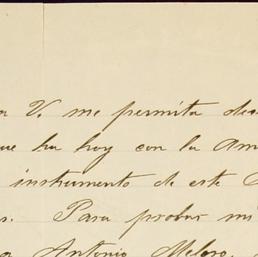 a V. me permita dec
que ha hoy con la Am
instrumento de este
s. Para probar mi
a Antonio Meloro,